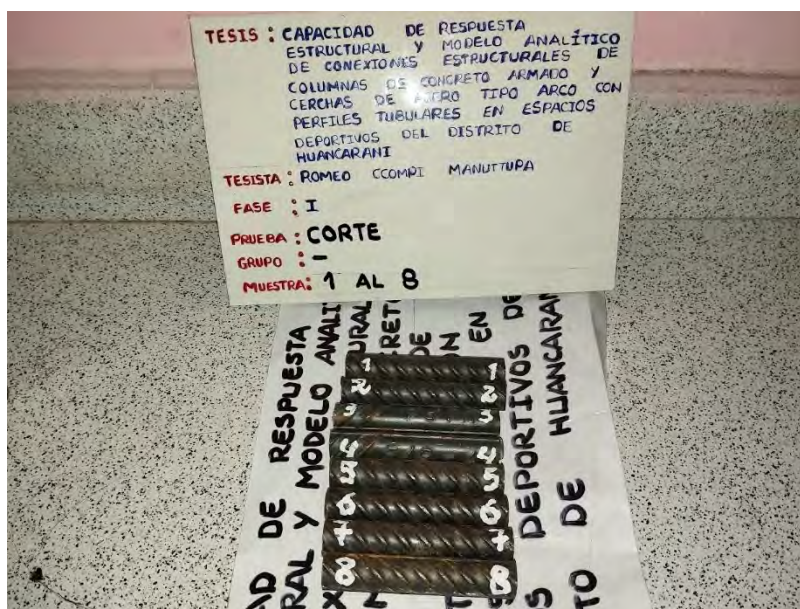 TESIS : CAPACIDAD DE RESPUESTA
ESTRUCTURAL Y MODELO ANALÍTICO
DE CONEXIONES ESTRUCTURALES DE
COLUMNAS DE CONCRETO ARMADO Y
CERCHAS DE ACERO TIPO ARCO CON
PERFILES TUBULARES EN ESPACIOS
DEPORTIVOS DEL DISTRITO DE
HUANCARANI
TESISTA : ROMEO CCOMPI MANUTTUPA
FASE : I
PRUEBA : CORTE
GRUPO : -
MUESTRA: 1 AL 8
DE RESPUESTA
Y MODELO
DE
EN
DEPORTIVOS
DE
1 1
2 2
3 3
4 4
5 5
6 6
7 7
8 8